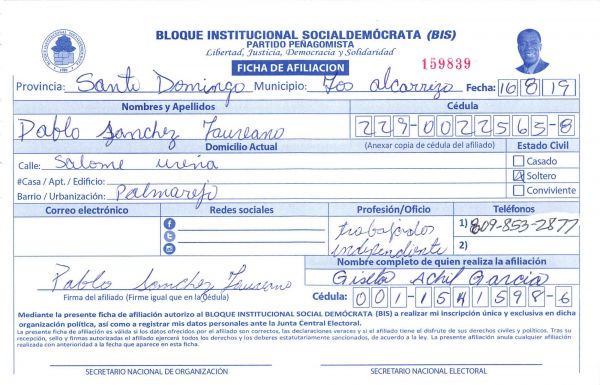 BLOQUE INSTITUCIONAL SOCIALDEMÓCRATA (BIS)
PARTIDO PEÑAGOMISTA
Libertad, Justicia, Democracia y Solidaridad
FICHA DE AFILIACION
159839
Provincia: Santo Domingo Municipio: Los alcarrizo Fecha: 16 8 19
Nombres y Apellidos Cédula
Pablo Sanchez Laureano 229-0022565-8
Domicilio Actual (Anexar copia de cédula del afiliado) Estado Civil
Calle: Salome ureña Casado
#Casa / Apt. / Edificio: Soltero
Barrio / Urbanización: Palmarejo Conviviente
Correo electrónico Redes sociales Profesión/Oficio Teléfonos
trabajador 1) 809-853-2877
independiente 2)
Nombre completo de quien realiza la afiliación
Pablo Sanchez Laureano Achil Garcia
Firma del afiliado (Firme igual que en la Cédula) Cédula: 001-1541598-6
Mediante la presente ficha de afiliación autorizo al BLOQUE INSTITUCIONAL SOCIAL DEMÓCRATA (BIS) a realizar mi inscripción única y exclusiva en dicha
organización política, así como a registrar mis datos personales ante la Junta Central Electoral.
La presente ficha de afiliación es válida si los datos ofrecidos por el afiliado son correctos, las declaraciones veraces y si el afiliado tiene el disfrute de sus derechos civiles y políticos. Tras su
recepción, sello y firmas autorizadas el afiliado ejercerá todos los derechos y los deberes estatutariamente sancionados, de acuerdo a la ley. La presente afiliación anula cualquier afiliación
realizada con anterioridad a la fecha que aparece en esta ficha.
SECRETARIO NACIONAL DE ORGANIZACIÓN SECRETARIO NACIONAL ELECTORAL